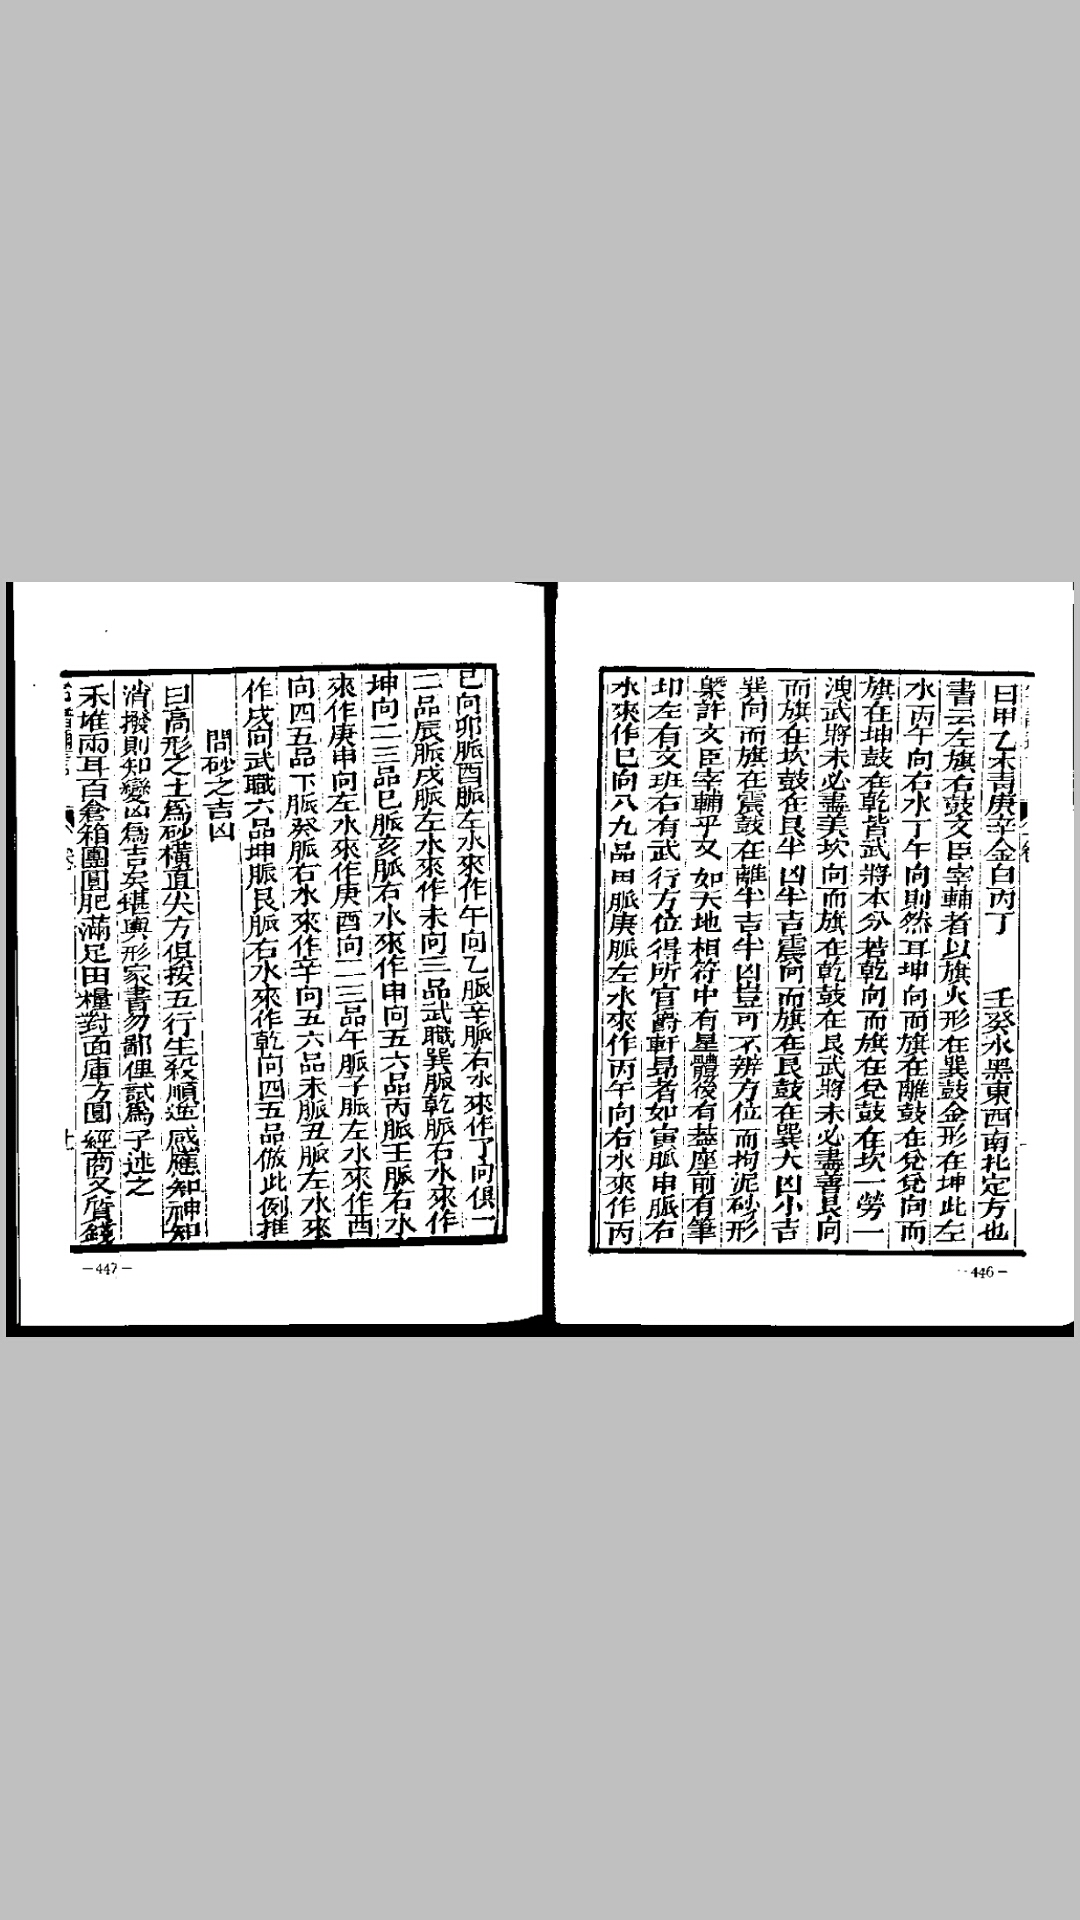 曰甲乙木青庚辛金白丙丁　　壬癸水黑東西南北定方也
書云左旗右鼓文臣宰輔者以旗火形在巽鼓金形在坤此左
水丙午向右水丁午向則然耳坤向而旗在離鼓在兌兌向而
旗在坤鼓在乾皆武將本分若乾向而旗在兌鼓在坎一勞一
洩武將未必盡美坎向而旗在乾鼓在艮武將未必盡善艮向
而旗在坎鼓在艮半凶半吉震向而旗在艮鼓在巽大凶小吉
巽向而旗在震鼓在離半吉半凶豈可不辨方位而拘泥砂形
槩許文臣宰輔乎又如天地相符中有星體後有葢座前有筆
印左有文班右有武行方位得所官爵軒昻者如寅脈申脈右
水來作巳向八九品甲脈庚脈左水來作丙午向右水來作丙
巳向卯脈酉脈左水來作午向乙脈辛脈右水來作丁向俱一
二品辰脈戌脈左水來作未向三品武職巽脈乾脈右水來作
坤向二三品巳脈亥脈右水來作申向五六品丙脈壬脈右水
來作庚申向左水來作庚酉向一二品午脈子脈左水來作酉
向四五品丁脈癸脈右水來作辛向五六品未脈丑脈左水來
作戌向武職六品坤脈艮脈右水來作乾向四五品倣此例推
問砂之吉凶
曰高形之土爲砂橫直尖方俱按五行生殺順逆感應知神知
消撥則知變凶爲吉矣堪輿形家書勿鄙俚試爲子述之
禾堆兩耳百倉箱團圓肥滿足田糧對面庫方圓經商又質錢
—446—
—447—